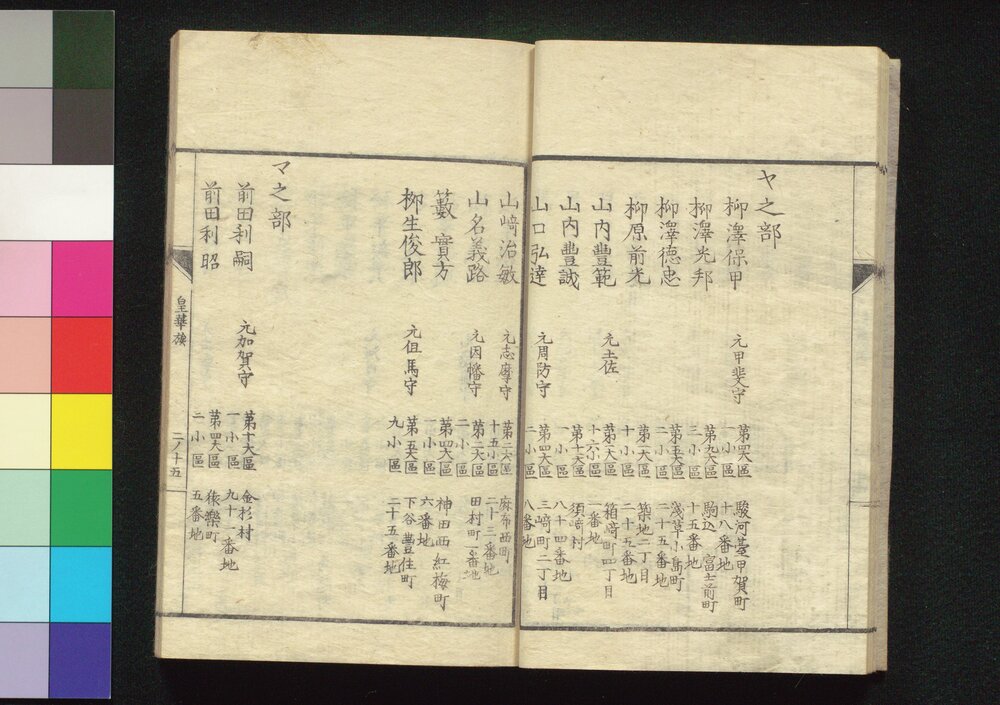 ヤ之部
柳澤保甲　元甲斐守　第四大區　一小區　駿河臺甲賀町　十八番地
柳澤光邦　第九大區　三小區　駒込富士前町　十五番地
柳澤德忠　第五大區　二小區　淺草小島町　二十五番地
柳原前光　第一大區　十一小區　築地二丁目　二十五番地
山内豐範　元土佐　第一大區　十六小區　箱﨑町四丁目　一番地
山内豐誠　第十一大區　一小區　須﨑村　八十四番地
山口弘達　元周防守　第四大區　二小區　三﨑町二丁目　八番地
山﨑治敏　元志摩守　第二大區　十五小區　麻布西町　二十三番地
山名義路　元因幡守　第二大區　二小區　田村町　一番地
籔實方　第四大區　一小區　神田西紅梅町　六番地
柳生俊郎　元但馬守　第五大區　九小區　下谷豐住町　二十五番地
マ之部
前田利嗣　元加賀守　第十大區　一小區　金杉村　九十一番地
前田利昭　第四大區　二小區　猿樂町　五番地
皇華族　二ノ十五